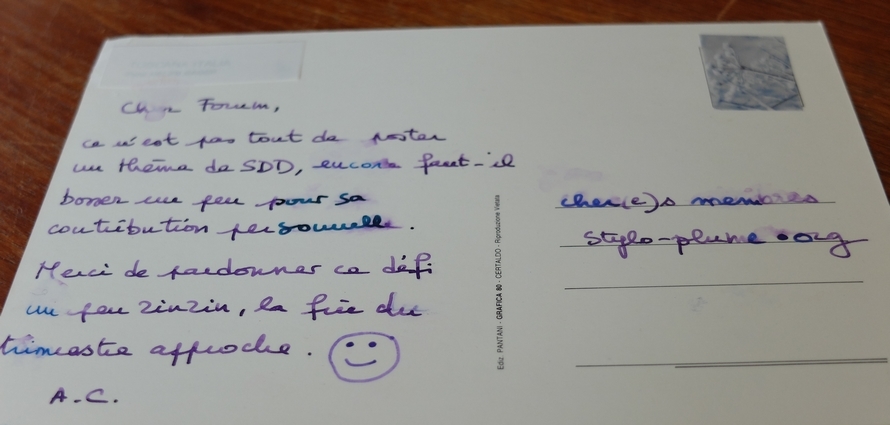 Cher Forum,
ce n'est pas tout de poster
un thème de SDD, encore faut-il
bosser un peu pour sa
contribution personnelle.
Merci de pardonner ce défi
un peu zinzin, la fin du
trimestre approche.
A.C.
cher(e)s membres
stylo-plume.org
Ediz. PANTANI - GRAFICA 80 - CERTALDO - Riproduzione Vietata